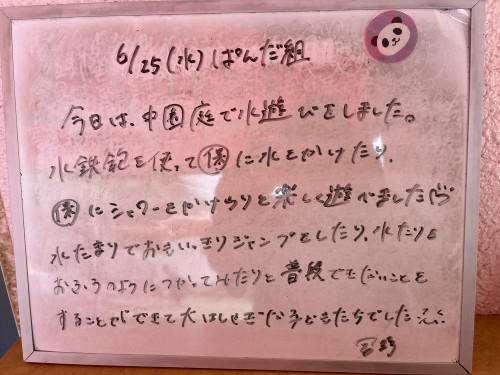 6/25(水)ぱんだ組
今日は、中園庭で水遊びをしました。
水鉄砲を使って傳に水をかけたり、
にシャワーをかけたりと楽しく遊べました
水たまりでおもいっきりジャンプをしたり、水たりを
おふろのようにつかってみたりと普段できないことを
することができて大はしゃぎな子どもたちでした